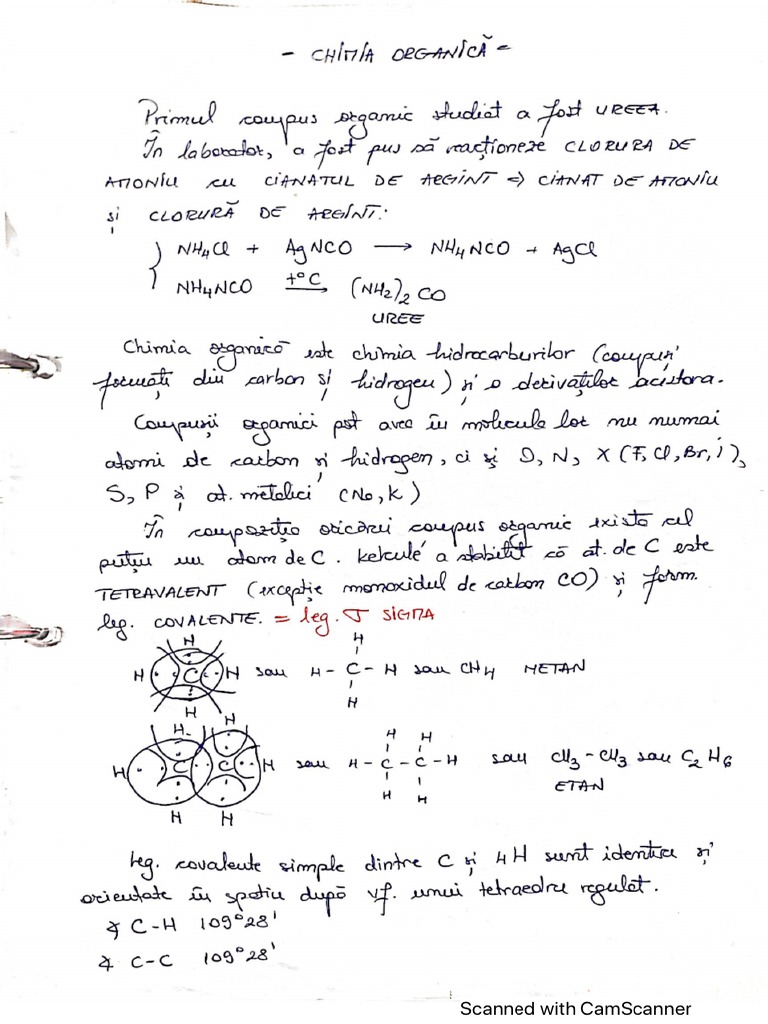 - CHIMIA ORGANICĂ -
Primul compus organic studiat a fost UREEA.
În laborator, a fost pus să reacționeze CLORURA DE
AMONIU cu CIANATUL DE ARGINT => CIANAT DE AMONIU
și CLORURĂ DE ARGINT:
NH4Cl + AgNCO → NH4NCO + AgCl
NH4NCO t°C→ (NH2)2 CO
UREE
Chimia organică este chimia hidrocarburilor (compuși
formați din carbon și hidrogen) și a derivaților acestora.
Compușii organici pot avea în molecula lor nu numai
atomi de carbon și hidrogen, ci și O, N, X (F, Cl, Br, I),
S, P și at. metalici (Na, K)
În compoziția oricărui compus organic există cel
puțin un atom de C. Kekulé a stabilit că at. de C este
TETRAVALENT (excepție monoxidul de carbon CO) și form.
leg. COVALENTE. = leg. σ SIGMA
H
H C H sau H - C - H sau CH4 METAN
H
H
H
H H
H C C H sau H - C - C - H sau CH3 - CH3 sau C2H6
H H
H H
ETAN
Leg. covalente simple dintre C și 4H sunt identice și
orientate în spațiu după vf. unui tetraedru regulat.
∢ C-H 109°28'
∢ C-C 109°28'
Scanned with CamScanner